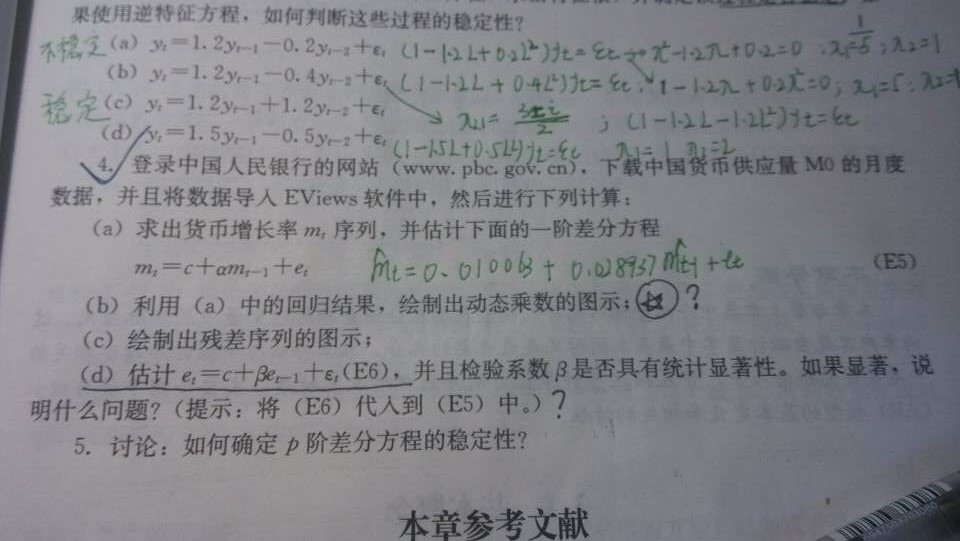 果使用逆特征方程，如何判断这些过程的稳定性？
不稳定 (a) yₜ=1.2yₜ₋₁−0.2yₜ₋₂+εₜ (1-1.2L+0.2L²)yₜ=εₜ → x²-1.2x+0.2=0 . x₁=1/5; x₂=1
(b) yₜ=1.2yₜ₋₁−0.4yₜ₋₂+εₜ (1-1.2L+0.4L²)yₜ=εₜ; 1-1.2x+0.2x²=0; x₁=5; x₂=1
稳定 (c) yₜ=1.2yₜ₋₁+1.2yₜ₋₂+εₜ = (3±i)/2 ; (1-1.2L-1.2L²)yₜ=εₜ
(d) yₜ=1.5yₜ₋₁−0.5yₜ₋₂+εₜ (1-1.5L+0.5L²)yₜ=εₜ x₁=1 x₂=2
4. 登录中国人民银行的网站（www.pbc.gov.cn），下载中国货币供应量 M0 的月度
数据，并且将数据导入 EViews 软件中，然后进行下列计算：
(a) 求出货币增长率 mₜ 序列，并估计下面的一阶差分方程
mₜ=c+αmₜ₋₁+eₜ m̂ₜ=0.010063+0.028937m̂ₜ₋₁+eₜ (E5)
(b) 利用（a）中的回归结果，绘制出动态乘数的图示；☆？
(c) 绘制出残差序列的图示；
(d) 估计 eₜ=c+βeₜ₋₁+εₜ(E6)，并且检验系数 β 是否具有统计显著性。如果显著，说
明什么问题？（提示：将（E6）代入到（E5）中。）？
5. 讨论：如何确定 p 阶差分方程的稳定性？
本章参考文献